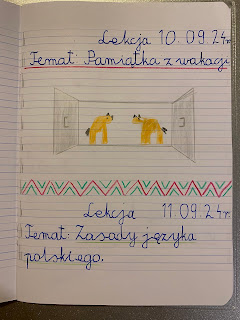 Lekcja 10.09.24r.
Temat: Pamiątka z wakacji
Lekcja 11.09.24r.
Temat: Zasady języka
polskiego.